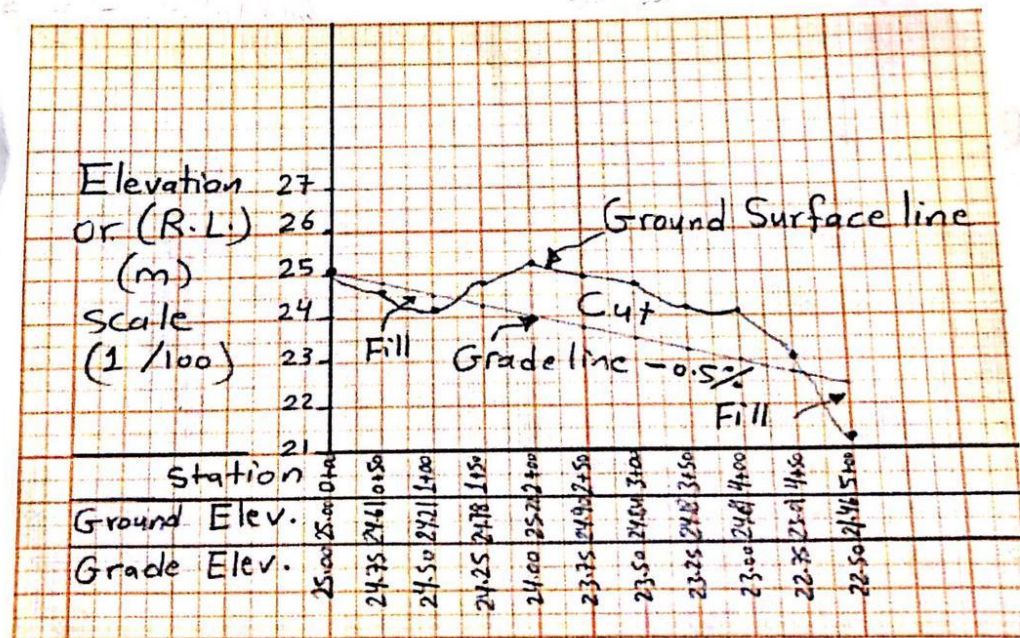 Elevation 27
or (R.L.) 26
(m) 25
scale 24
(1/100) 23
22
21
Ground Surface line
Cut
Fill
Grade line -0.5%
Fill
Station 0+00 0+50 1+00 1+50 2+00 2+50 3+00 3+50 4+00 4+50 5+00
Ground Elev. 25.00 24.61 24.21 24.78 21.46
Grade Elev. 25.00 24.75 24.50 24.25 24.00 23.75 23.50 23.25 23.00 22.75 22.50